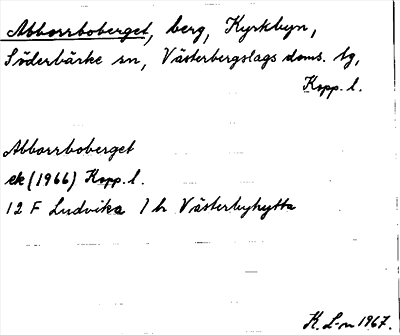 Abborrboberget, berg, Kyrkbyn,
Söderbärke sn, Västerbergslags doms. tg,
Kopp. l.
Abborrboberget
ek (1966) Kopp. l.
12 F Ludvika 1 h Västerbyhytta
K. L-m 1967.